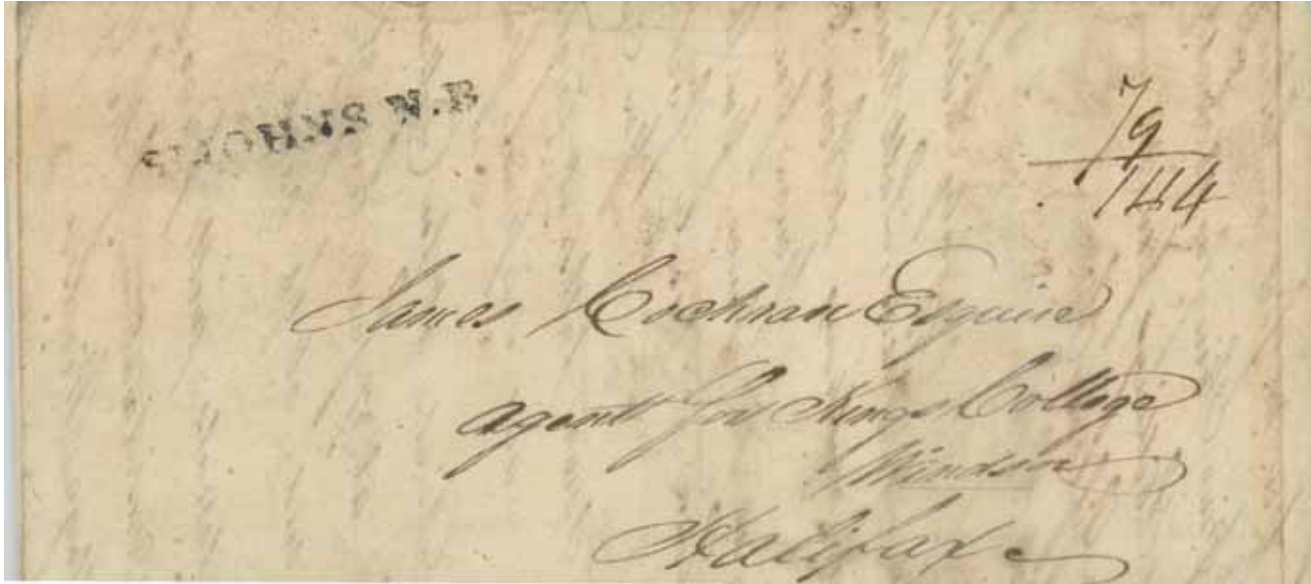 ST JOHNS N.B
7/9
144
James Cochran Esquire
agent for Kings College
Windsor
Halifax